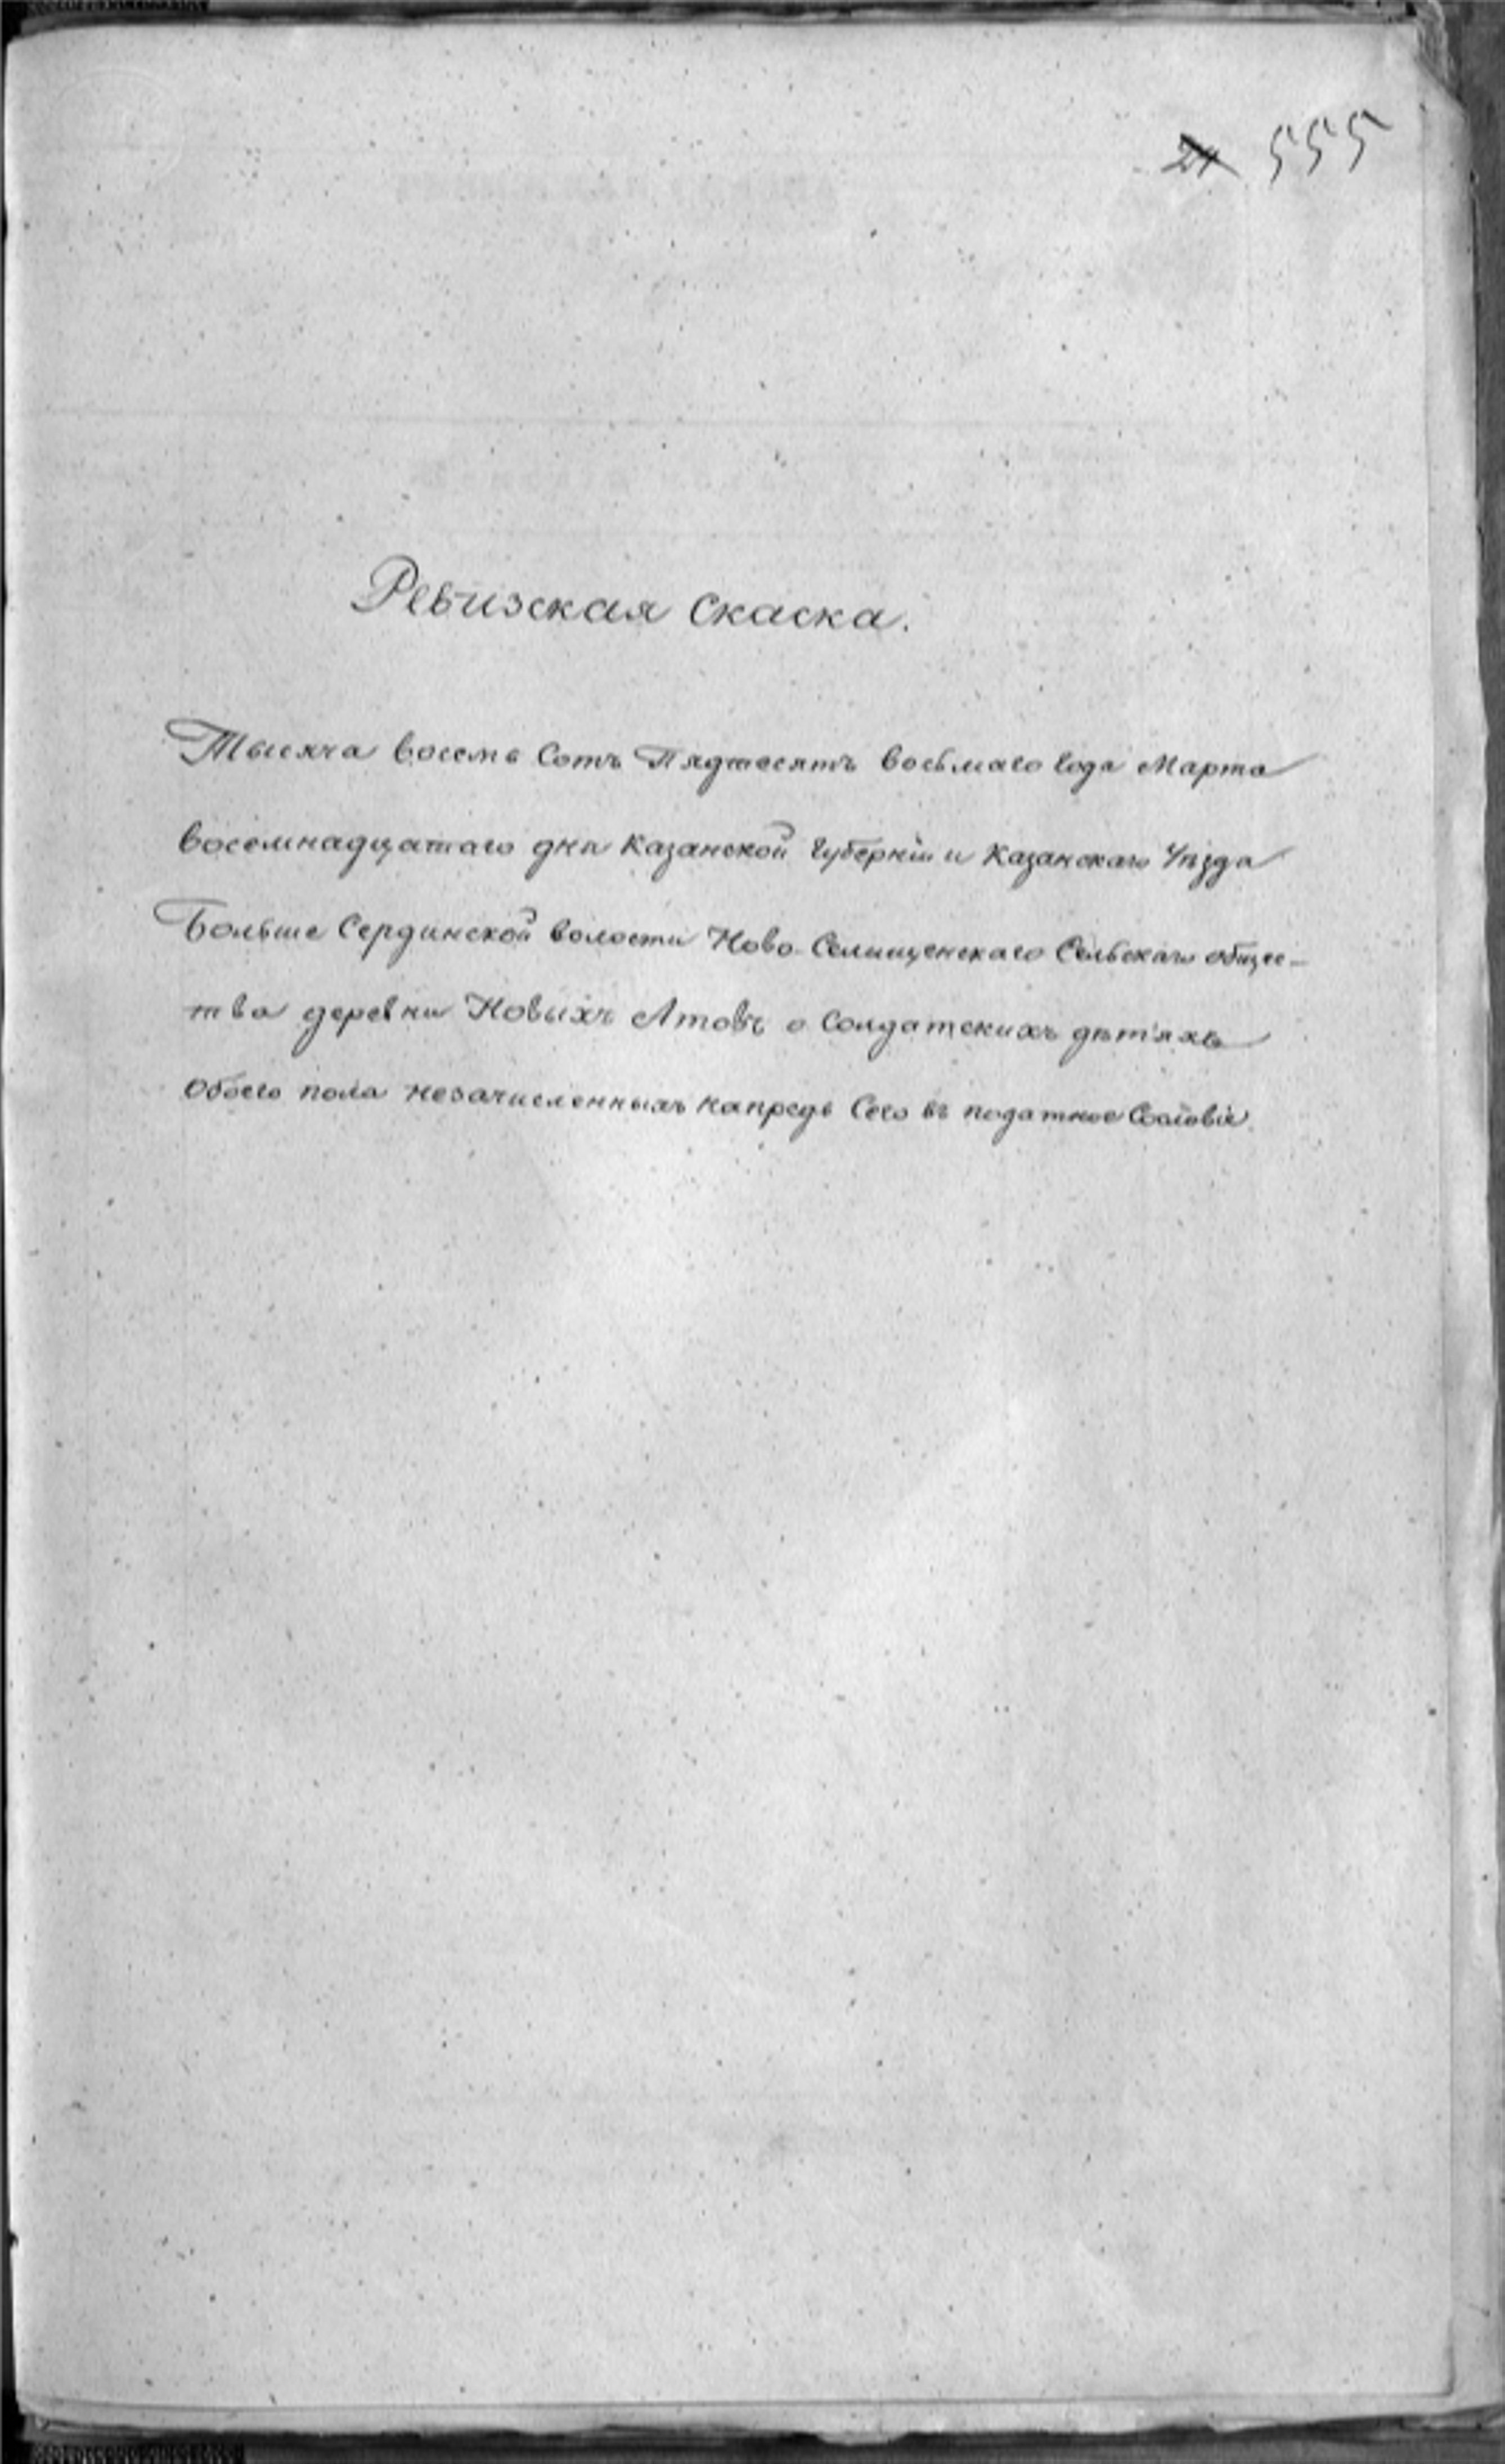 555
Ревизская скаска.
Тысяча восемь сотъ Пядтесятъ восьмаго года Марта
восемнадцатаго дня Казанской Губерніи и Казанскаго Уѣзда
Больше Сердинской волости Ново-Селищенскаго Сельскаго общес-
тва деревни Новыхъ Атовъ о Солдатскихъ дѣтяхъ
Обоего пола незачисленныхъ напредь Сего въ податное Сословіе